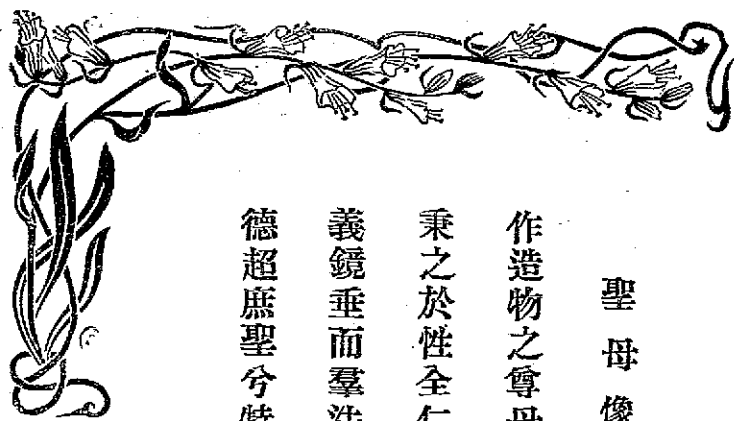 聖母像
作造物之尊母
秉之於性全仁
義鏡垂而羣法
德超庶聖兮特